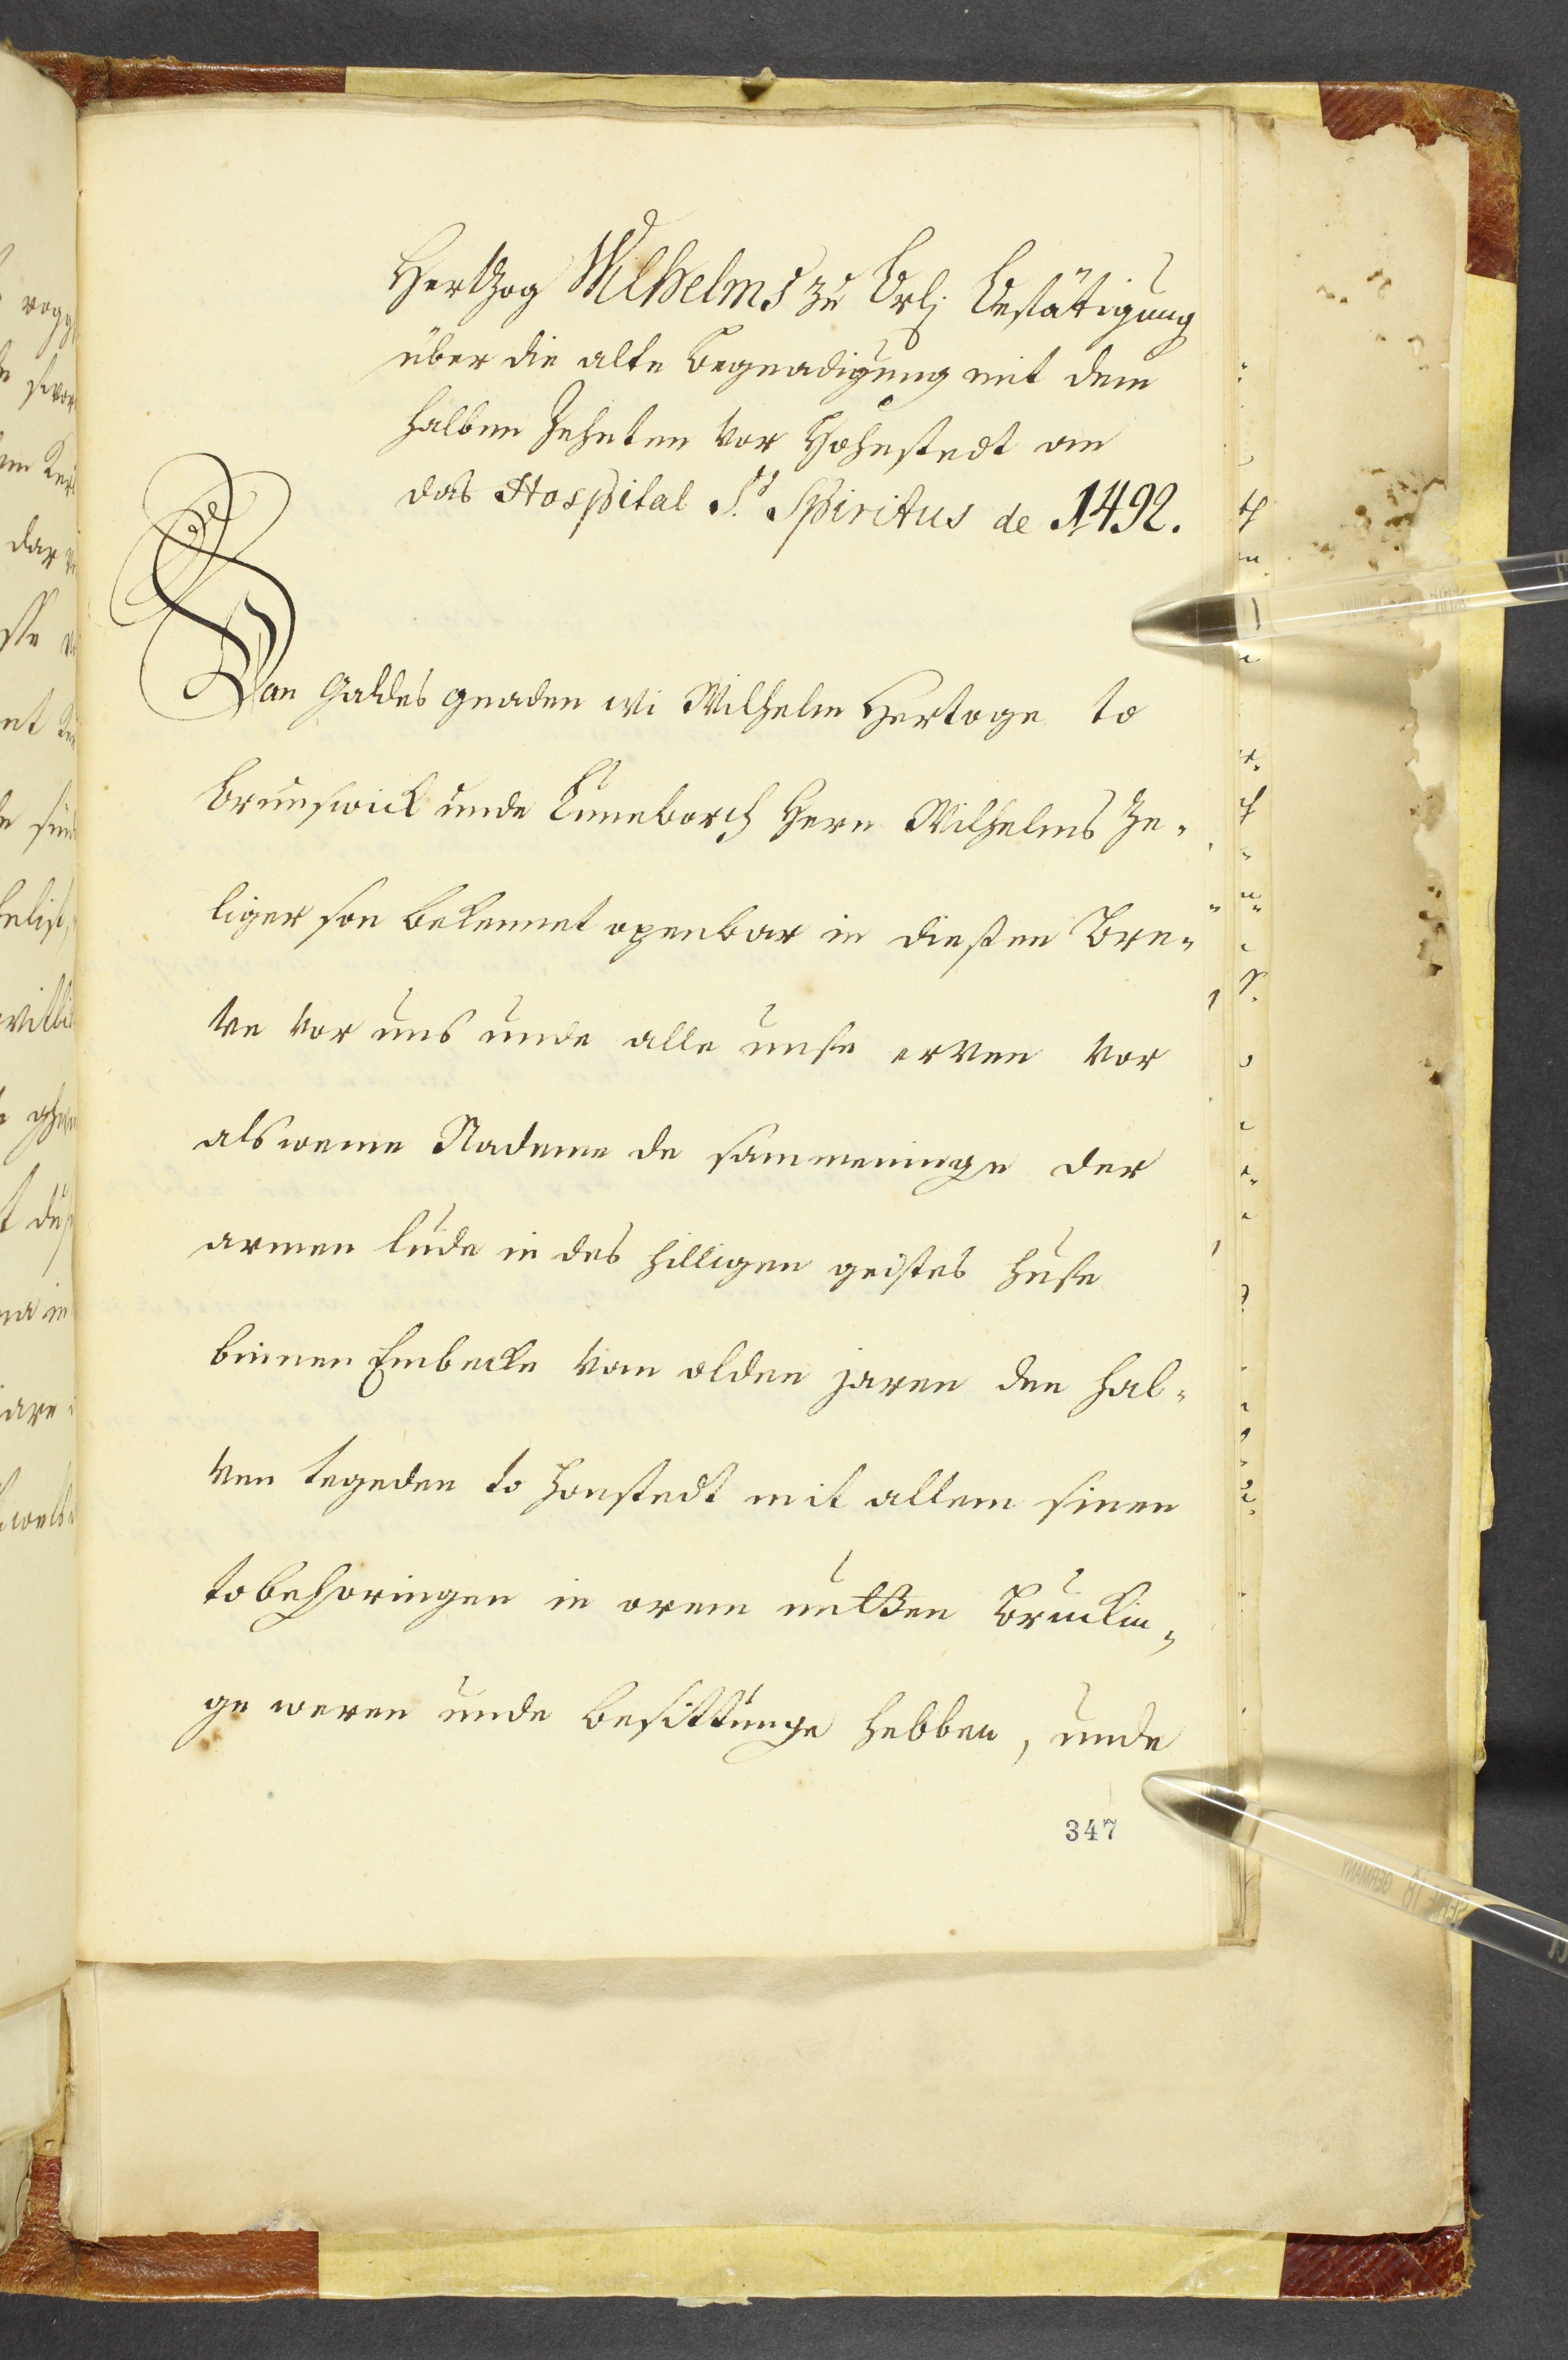 Hertzog Wilhelms zu Br.L. Bestätigung
über die alte Begnadigung mit dem
halben Zehnten vor Hohnstedt an
das Hospital S.t Spiritus de 1492.
Van Gaddes gnaden wi Wilhelm Hertoge to
Brunswick unde Luneborch Hern Wilhelms Ze-
liger son bekennet openbar in dießen Bre-
ve vor uns unde alle unse erven vor
alsweme Nademe de sammeninge der
armen lude in des hilligen geistes huse
binnen Embecke van olden jaren den hal-
ven tegeden to Honstedt mit allem sinen
tobehoringen in orem nutßen Brukin-
ge weren unde besittunge hebben, unde
347